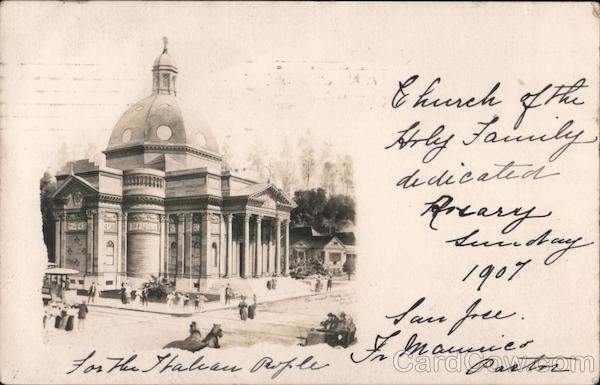 Church of the
Holy Family
dedicated
Rosary
Sunday
1907
San Jose.
Fr Maurice
Pastor
For the Italian People
CardCow.com